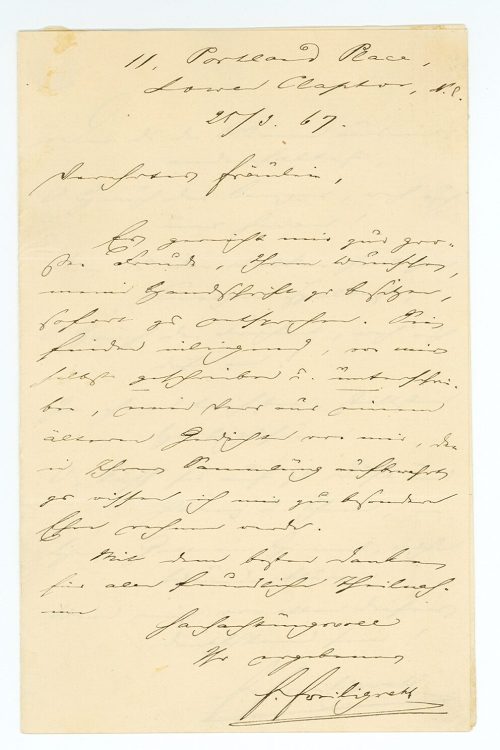 11, Portland Place,
Lower Clapton, N.E.
25/3. 67.
Verehrtes Fräulein,
Es gereicht mir zur gro-
ßen Freude, Ihrem Wunsche,
meine Handschrift zu besitzen,
sofort zu entsprechen. Sie
finden inliegend, von mir
selbst geschrieben u. unterschrie-
ben, einen Vers aus einem
älteren Gedichte von mir, den
in Ihrer Sammlung aufbewahrt
zu wissen ich mir zur besonderen
Ehre rechnen werde.
Mit dem besten Danke
für alle freundliche Theilnah-
me
hochachtungsvoll
Ihr ergebener
F. Freiligrath